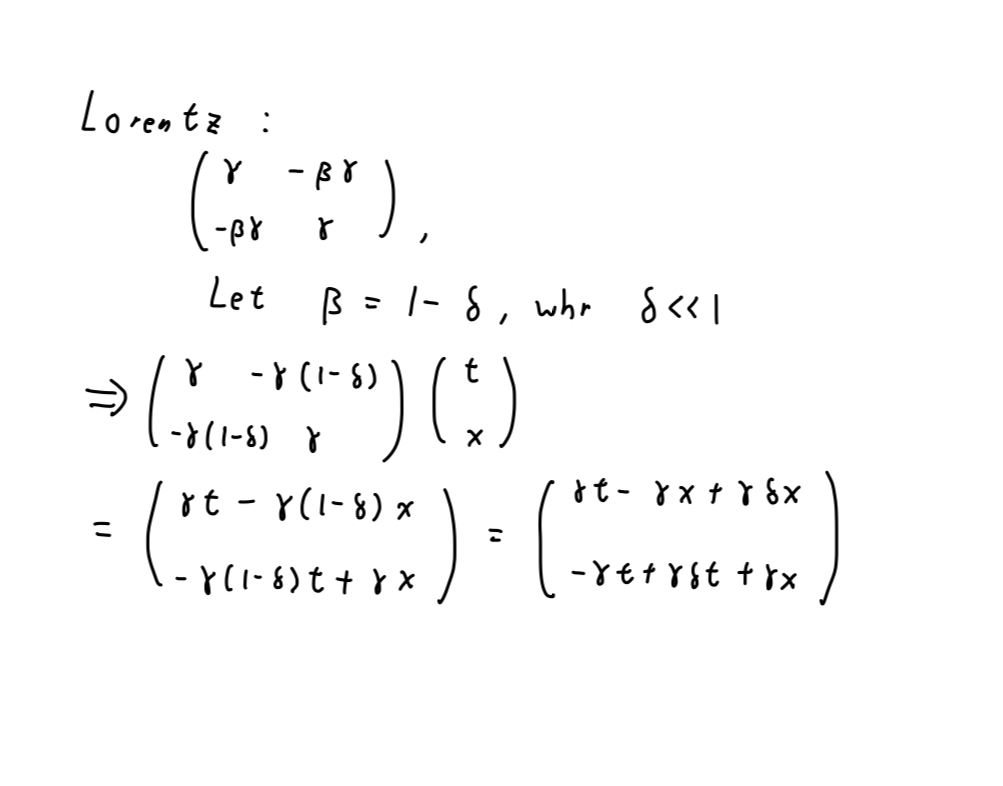 Lorentz :
( γ  -βγ ; -βγ  γ ) ,
Let β = 1- δ , whr δ << 1
⇒ ( γ  -γ(1-δ) ; -γ(1-δ)  γ ) ( t ; x )
= ( γt - γ(1-δ)x ; -γ(1-δ)t + γx ) = ( γt - γx + γδx ; -γt + γδt + γx )